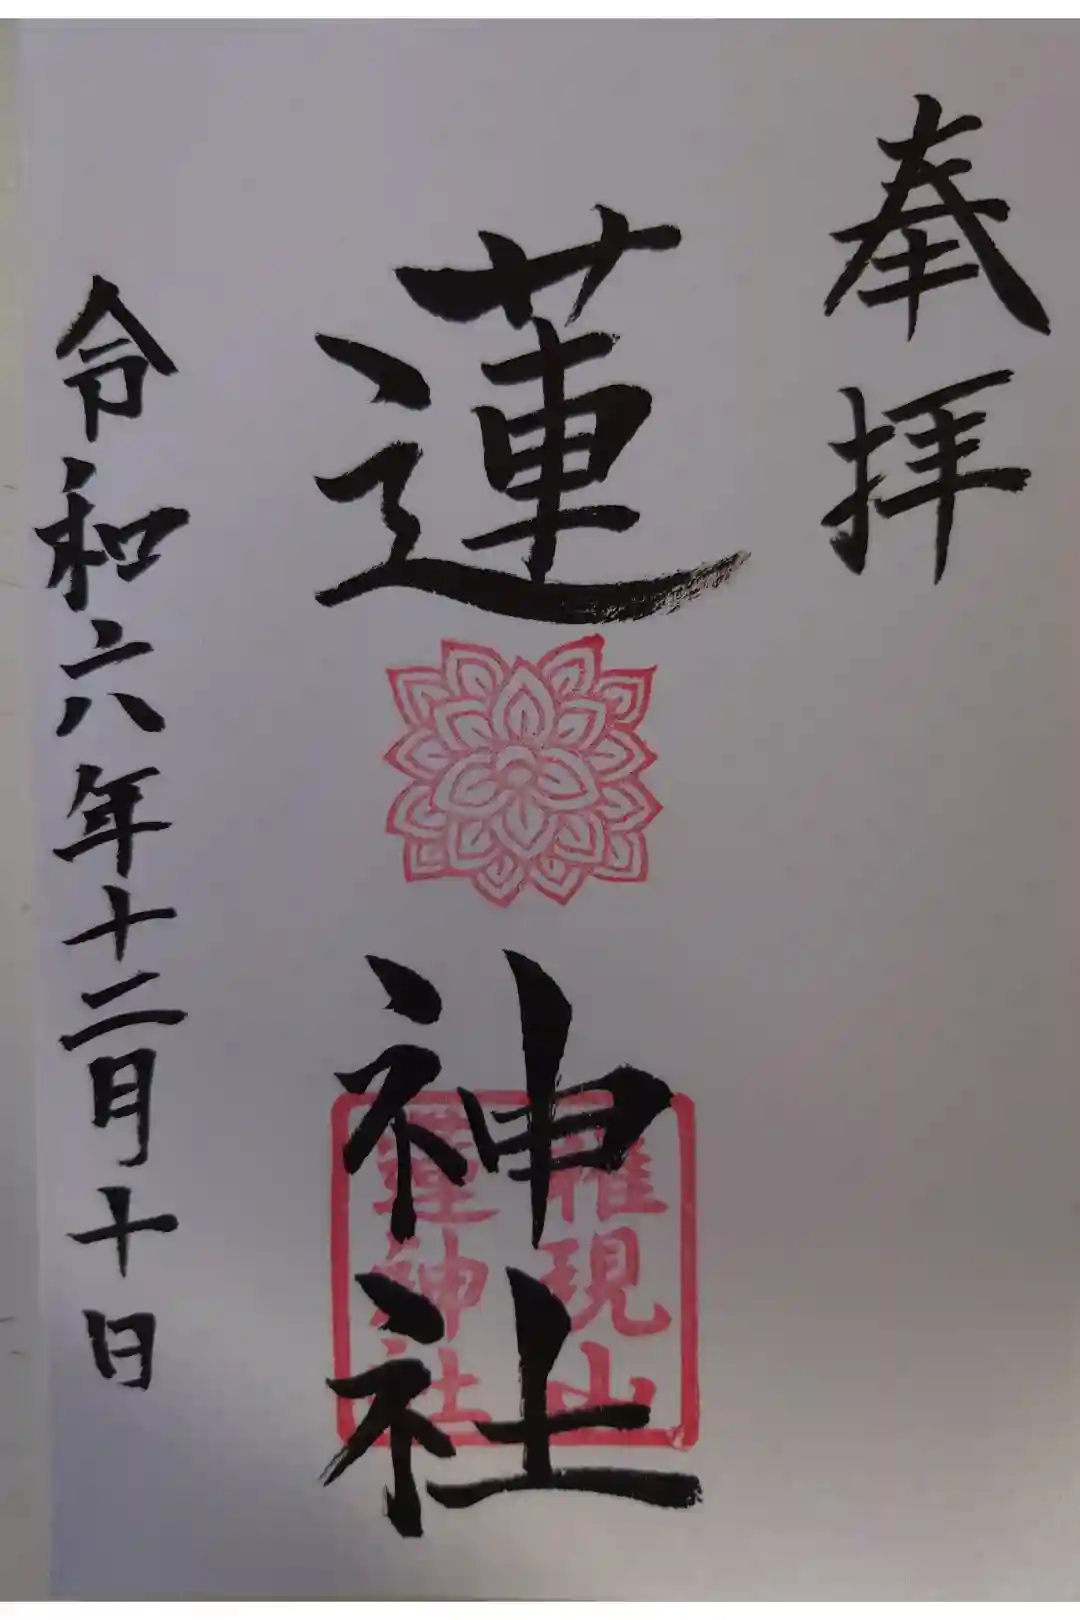 奉拝
蓮神社
權現山
蓮神社
令和六年十二月十日